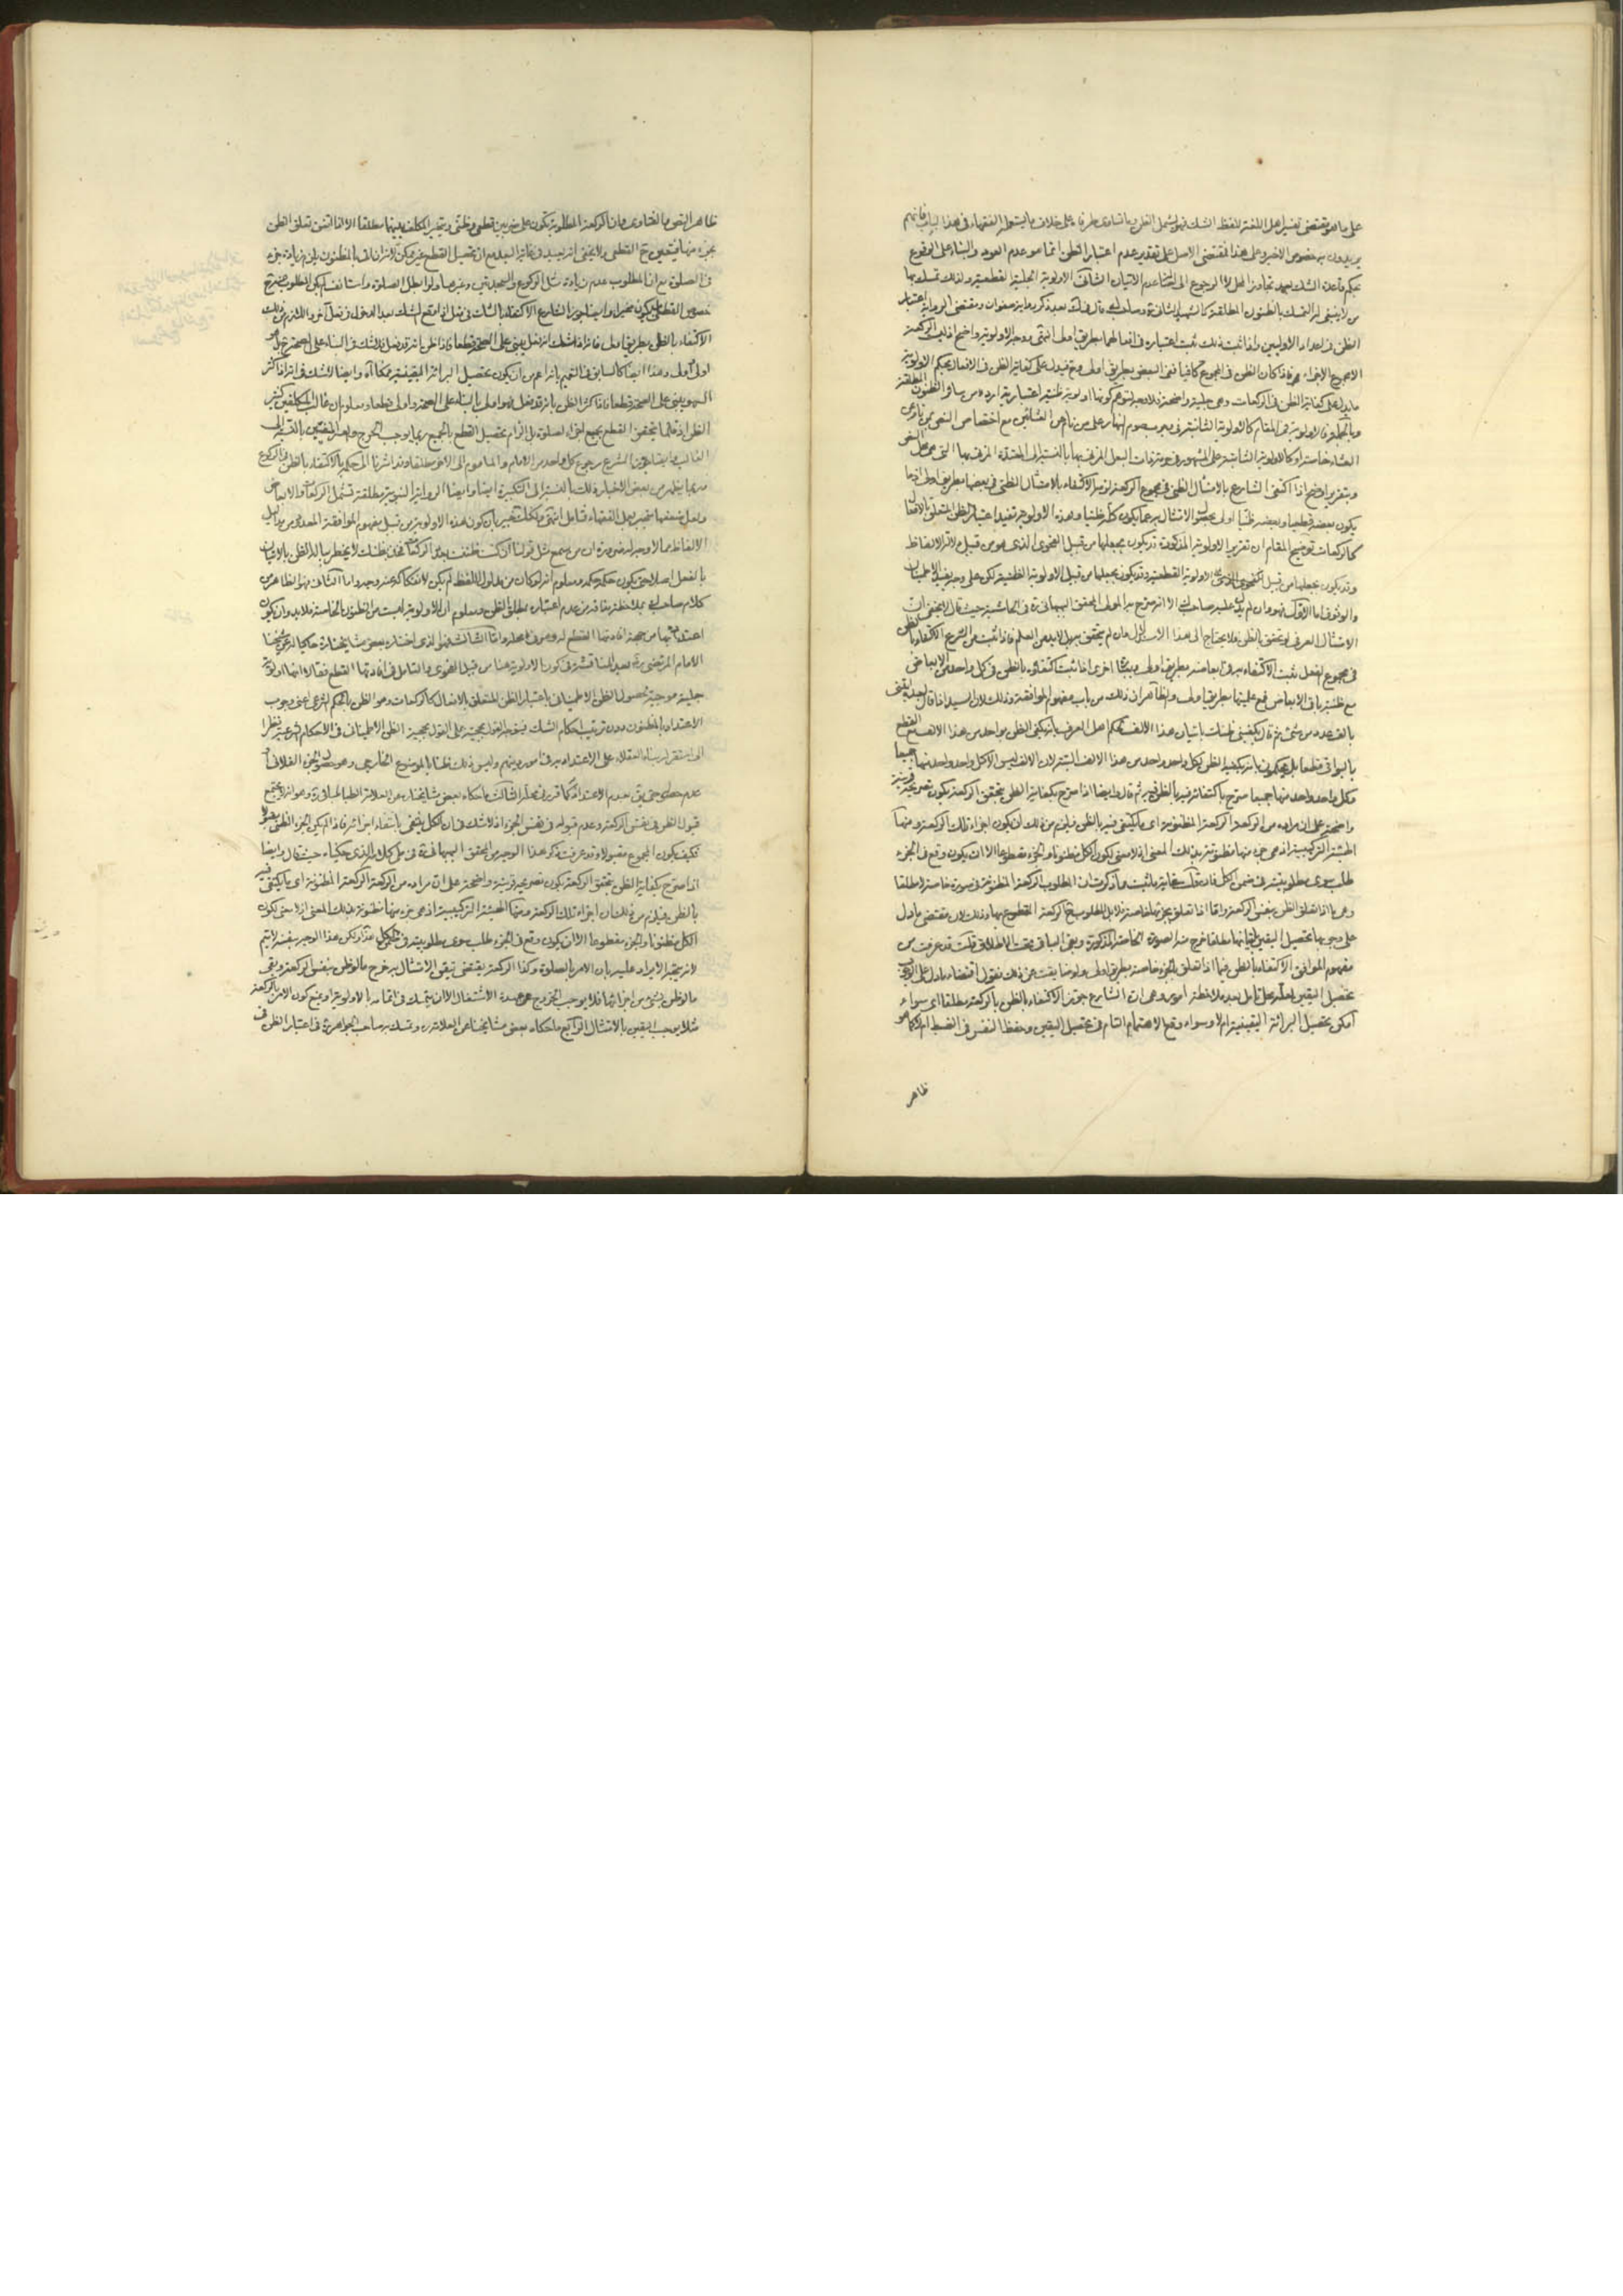 على ما هو مقتضى تفسير اهل اللغة للفظ الشك فهو يشمل الظن وما تساوى طرفاه على خلاف ما يستعمله الفقهاء فى هذا الباب فانهم
يريدون به خصوص الاخير وعلى هذا المقتضى الاصل على تقدير عدم اعتبار الظن انما هو عدم العود والبناء على الوقوع
بحكم قاعدة الشك بعد تجاوز المحل لا الرجوع الى اصالة عدم الاتيان الثانى الاولوية الجلية القطعية ولذلك تمسك بها
من لا ينبغى له التمسك بالظنون المطلقة كالشهيد الثانى وصاحب قال فى بعد ذكر رواية صفوان ومقتضى الرواية اعتبار
الظن فى اعداد الاوليين واذا ثبت ذلك ثبت اعتباره فى افعالهما بطريق اولى انتهى ووجه الاولوية واضح اذ ليست الركعة
الا مجموع الاجزاء فاذا كان الظن فى المجموع كافيا ففى البعض بطريق اولى فيدل على كفاية الظن فى الافعال بحكم الاولوية
ما يدل على كفاية الظن فى الركعات وهى جلية واضحة فلا وجه لتوهم كونها اولوية ظنية اعتبارية اردء من سائر الظنون المطلقة
وبالجملة فالاولوية فى المقام كالاولوية الثابتة فى وجوب صوم النهار على من نام عن العشائين مع اختصاص النص بمن نام عن
وبتقرير اوضح اذا اكتفى الشارع بالامتثال الظنى فى مجموع الركعة لزمه الاكتفاء بالامتثال الظنى فى بعضها بطريق اولى اذ ما
يكون بعضه قطعيا وبعضه ظنيا اولى بحصول الامتثال به مما يكون كله ظنيا وهذه الاولوية تفيد اعتبار الظن المتعلق بالافعال
كالركعات توضيح المقام ان تقرير الاولوية المذكورة قد يكون بجعلها من قبيل الفحوى الذى هو من قبيل دلالة الالفاظ
وقد يكون بجعلها من قبيل الاولوية القطعية وقد يكون بجعلها من قبيل الاولوية الظنية لكن على وجه يفيد الاطمينان
والوثوق اما الاول فهو وان لم يدل عليه صاحب الا انه صرح به المولى المحقق البهبهانى فى الحاشية حيث قال لا يخفى ان
الامتثال العرفى لو تحقق بالظن فلا يحتاج الى هذا الاستدلال وان لم يتحقق بل لا بد من العلم فاذا ثبت من الشرع الاكتفاء بالظن
فى مجموع الفعل يثبت الاكتفاء به فى ابعاضه بطريق اولى وبعبارة اخرى اذا ثبت اكتفاؤه بالظن فى كل واحد من الابعاض
مع ظنية باقى الابعاض فمع علميتها بطريق اولى والظاهر ان ذلك من باب مفهوم الموافقة وذلك لان السيد اذا قال لعبده ايتنى
بالف عدد من شىء ثم قال يكفينى ظنك باتيان هذا الالف حكم اهل العرف بانه يكفى الظن بواحد من هذا الالف مع القطع
بالبواقى قطعا بل يحكمون بانه يكفيه الظن بكل واحد واحد من هذا الالف البتة لان الالف ليس الا كل واحد واحد منها جميعا
وكل واحد واحد منها جميعا صرح باكتفائه فيه بالظن به ثم قال وايضا اذا صرح بكفاية الظن بتحقق الركعة يكون تصريحه قرينة
واضحة على ان مراده من الركعة الركعة المظنونة اى ما يكتفى فيه بالظن فيلزم من ذلك ان يكون اجزاء تلك الركعة ومنها
الهيئة التركيبية اذ هى جزء منها مظنونة بذلك المعنى اذ لا معنى لكون الكل مظنونا والجزء مقطوعا الا ان يكون وقع فى الجزء
طلب سوى مطلوبيته فى ضمن الكل فان قلت غاية ما ثبت مما ذكرت ان المطلوب الركعة المظنونة فى صورة خاصة لا مطلقا
وهى ما اذا تعلق الظن بنفس الركعة واما اذا تعلق بجزئها خاصة فلا بل المطلوب ح الركعة المقطوع بها وذلك لان مقتضى ما دل
على وجوبها تحصيل اليقين باتيانها مطلقا خرج منه الصورة الخاصة المذكورة وبقى الباقى تحت الاطلاق قلت قد عرفت من
مفهوم الموافق الاكتفاء بالظن فيما اذا تعلق بالجزء خاصة بطريق اولى
تحصيل اليقين بعد ملاحظة امور وهى ان الشارع جوز الاكتفاء بالظن بالركعة مطلقا اى سواء
امكن تحصيل البرائة اليقينية ام لا وسواء وقع الاهتمام التام فى تحصيل اليقين وحفظ النفس فى الضبط ام لا كما هو
ظاهر
ظاهر النص والفتاوى وان الركعة المطلوبة تكون على ضربين قطعى وظنى ويتخير المكلف بينهما مطلقا الا اذا اتفق تعلق الظن
بجزء منها فيتعين ح القطعى ولا يخفى انه بعيد فى غاية البعد مع ان تحصيل القطع غير ممكن لانه ان اتى بالمظنون يلزم زيادة جزء
فى الصلوة مع ان المطلوب عدم زيادة مثل الركوع والسجدتين وغيرهما ولو ابطل الصلوة واستانف لم يكن المطلوب منه ح
خصوص القطعى بل يكون مخيرا وايضا جوز الشارع الاكتفاء بالشك فى فعل اذا وقع الشك بعد الدخول فى فعل آخر واللازم من ذلك
الاكتفاء بالظن بطريق اولى فانه اذا شك انه فعل يبنى على الصحة قطعا فاذا ظن بانه قد فعل فلا شك فى البناء على الصحة ح بل هو
اولى واولى وهذا ايضا كالسابق فى التعميم بانه اعم من ان يكون تحصيل البرائة اليقينية ممكنا ام لا وايضا لا شك فى انه اذا كثر
السهو يبنى على الصحة قطعا فاذا كثر الظن بانه قد فعل فهو اولى بالبناء على الصحة واولى قطعا ومعلوم ان غالب المكلفين كثير
الظن اذ قلما يتحقق القطع بجميع اجزاء الصلوة بل الزام تحصيل القطع بالجميع ربما يوجب الحرج والعسر المنفيين بالنسبة الى
الغالب وايضا جوز الشرع رجوع كل واحد من الامام والماموم الى الآخر مطلقا وقد اشرنا الى حكمه بالاكتفاء بالظن فى الركوع
وربما يظهر من بعض الاخبار ذلك بالنسبة الى التكبيرة ايضا وايضا الرواية النبوية مطلقة تشمل الركعات والابعاض
ولعل ضعفها منجبر بعمل الفقهاء فتامل انتهى ولكنك خبير بان كون هذه الاولوية من قبيل مفهوم الموافقة المعدود من مداليل
الالفاظ مما لا وجه له ضرورة ان من يسمع مثل قولنا ان كنت ظننت بعدد الركعات فخذ بظنك لا يخطر بباله الظن بالاتيان
بالفعل اصلا حتى يكون حكمه حكمه ومعلوم انه لو كان من مدلول اللفظ لم يكن لانفكاكه عنه وجه واما الثانى فهو الظاهر من
كلام صاحب بملاحظة ما قد من عدم اعتباره بمطلق الظن ومعلوم ان الاولوية ليست من الظنون الخاصة فلا بد وان يكون
اعتداده بها من جهة افادتها القطع له وصرف واما الثالث فهو الذى اختاره بعض مشايخنا حاكيا له عن شيخنا
الامام المرتضى ره بعد المناقشة فى كون الاولوية هنا من قبيل الفحوى والتامل فى افادتها القطع فقال انها اولوية
جلية موجبة لحصول الظن الاطمينانى باعتبار الظن المتعلق بالافعال كالركعات وهو الظن بالحكم الشرعى اعنى وجوب
الاعتداد بالمظنون دون ترتيب احكام الشك فيتوجه القول بحجيته على القول بحجية الظن الاطمينانى فى الاحكام الشرعية نظرا
الى استقرار بناء العقلاء على الاعتداد به فى امور دينهم وليس ذلك ظنا بالموضوع الخارجى وهو حصول الجزء الفلانى او
عدم حصوله حتى يق بعدم الاعتداد كما قرر فى محله الثالث ما حكاه بعض مشايخنا عن العلامة الطباطبائى وهو انه لا يجتمع
قبول الظن فى نفس الركعة وعدم قبوله فى نفس الجزء اذ لا شك فى ان الكل ينتفى بانتفاء اجزائه فاذا لم يكن الجزء الظنى مقبولا
فكيف يكون المجموع مقبولا وقد عرفت ذكر هذا الوجه من المحقق البهبهانى فى ذيل كلامه الذى حكيناه حيث قال وايضا
اذا صرح بكفاية الظن بتحقق الركعة يكون تصريحه قرينة واضحة على ان مراده من الركعة الركعة المظنونة اى ما يكتفى فيه
بالظن فيلزم من ذلك ان اجزاء تلك الركعة ومنها الهيئة التركيبية اذ هى جزء منها مظنونة بذلك المعنى اذ لا معنى لكون
الكل مظنونا والجزء مقطوعا الا ان يكون وقع فى الجزء طلب سوى مطلوبيته فى ضمن الكل هذا ولكن هذا الوجه بنفسه لا يتم
لانه يتجه الايراد عليه بان الامر بالصلوة وكذا الركعة يقتضى تيقن الامتثال به خرج ما لو ظن بنفس الركعة وبقى
ما لو ظن بشىء من اجزائها فلا يوجب الخروج عن عهدة الاشتغال الا ان يتمسك فى اتمامه بالاولوية او بمنع كون الامر بالركعة
مثلا يوجب اليقين بالامتثال الرابع ما حكاه بعض مشايخنا عن العلامة ره وتمسك به صاحب الجواهر ره فى اعتبار الظن فى